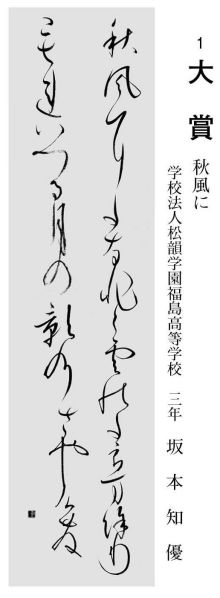 1 大賞
秋風に
学校法人松韻学園福島高等学校 三年 坂本知優
秋風にたなひく雲のたえ万より
もれいつる月の影のさやけさ